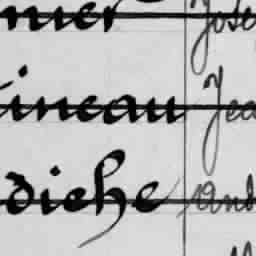 mer Jose
ineau Jea
diehe And